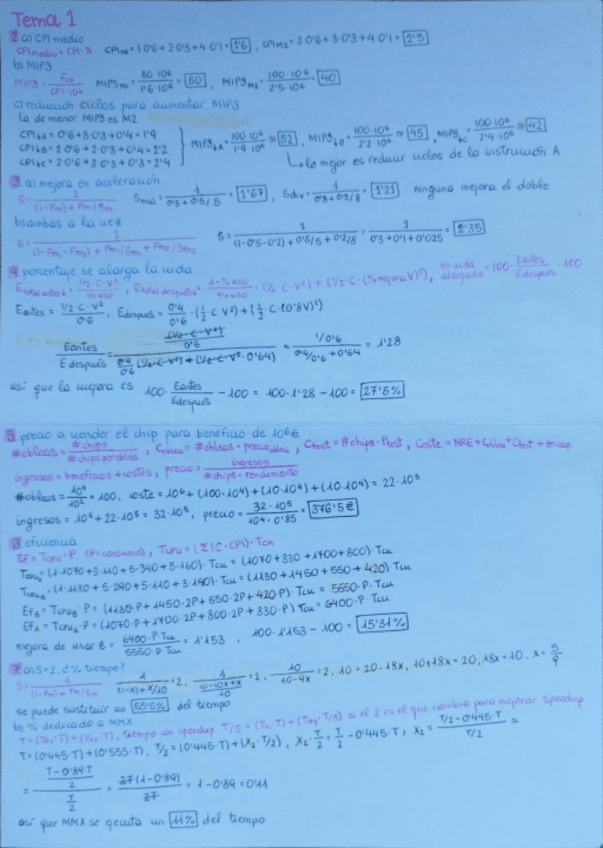 Tema 1
2 a) CPI medio
CPI medio = CPI · % CPI M1 = 1·0'6 + 2·0'3 + 4·0'1 = 1'6, CPI M2 = 2·0'6 + 3·0'3 + 4·0'1 = 2'5
b) MIPS
MIPS = Fck / CPI·10⁶ MIPS M1 = 80·10⁶ / 1'6·10⁶ = 50, MIPS M2 = 100·10⁶ / 2'5·10⁶ = 40
c) reducción ciclos para aumentar MIPS
la de menor MIPS es M2
CPI↓A = 0'6 + 3·0'3 + 0'4 = 1'9
CPI↓B = 2·0'6 + 2·0'3 + 0'4 = 2'2
CPI↓C = 2·0'6 + 3·0'3 + 0'3 = 2'4
MIPS↓A = 100·10⁶ / 1'9·10⁶ ≅ 52, MIPS↓B = 100·10⁶ / 2'2·10⁶ ≅ 45, MIPS↓C = 100·10⁶ / 2'4·10⁶ ≅ 42
↳ lo mejor es reducir ciclos de la instrucción A
3. a) mejora en aceleración
S = 1 / (1-Fm) + Fm/Sm Smul = 1 / 0'5 + 0'5/5 = 1'67, Sdiv = 1 / 0'8 + 0'2/8 = 1'21 ninguna mejora el doble
b) ambas a la vez
S = 1 / (1-Fm1-Fm2) + Fm1/Sm1 + Fm2/Sm2 S = 1 / (1-0'5-0'2) + 0'5/5 + 0'2/8 = 1 / 0'3 + 0'1 + 0'025 = 2'35
4 porcentaje se alarga la vida
Eantes = 1/2·C·V² / 0'6, Edespués = 0'4/0'6 · (1/2·C·V²) + (1/2·C·(0'8V)²)
Eantes / Edespués = (1/2·C·V²) / 0'6 / 0'4/0'6 (1/2·C·V²) + (1/2·C·V²·0'64) = 1/0'6 / 0'4/0'6 + 0'64 = 1'28
así que la mejora es 100 · Eantes/Edespués - 100 = 100·1'28 - 100 = 27'5%
5 precio a vender el chip para beneficio de 10⁶€
#obleas = #chips / #chips por oblea, Coblea = #obleas · precio oblea, Ctest = #chips · Ptest, Coste = NRE + Coblea + Ctest + encap
ingresos = beneficios + costes, precio = ingresos / #chips · rendimiento
#obleas = 10⁴/10² = 100, coste = 10⁶ + (100·10⁴) + (10·10⁴) + (10·10⁴) = 22·10⁵
ingresos = 10⁶ + 22·10⁵ = 32·10⁵, precio = 32·10⁵ / 10⁴·0'85 = 376'5€
6 eficiencia
EF = Tcpu · P (P = consumo), Tcpu = (Σ IC·CPI)·Tck
TcpuA = (1·1070 + 3·110 + 5·340 + 5·160)·Tck = (1070 + 330 + 1700 + 800)·Tck
TcpuB = (1·1130 + 5·290 + 5·110 + 3·140)·Tck = (1130 + 1450 + 550 + 420) Tck
EFB = TcpuB · P = (1130·P + 1450·2P + 550·2P + 420·P)·Tck = 5550·P·Tck
EFA = TcpuA · P = (1070·P + 1700·2P + 800·2P + 330·P) Tck = 6400·P·Tck
mejora de usar B = 6400·P·Tck / 5550·P·Tck = 1'153, 100·1'153 - 100 = 15'31%
7 a) S=2, ¿% tiempo?
S = 1 / (1-Fm) + Fm/Sm 1 / (1-x) + x/10 = 2, 1 / 10-10x+x / 10 = 2, 10 / 10-9x = 2, 10 = 20 - 18x, 10+18x = 20, 18x = 10, x = 5/9
se puede sustituir un 55'5% del tiempo
b) % dedicado a MMX
T = (0'445·T) + (0'555·T), T/2 = (0'445·T) + (X2·T/2), X2·T/2 = T/2 - 0'445·T, X2 = T/2 - 0'445·T / T/2 =
= T - 0'89T / 2 / T/2 = 2T(1-0'89) / 2T = 1 - 0'89 = 0'11
así que MMX se ejecuta un 11% del tiempo